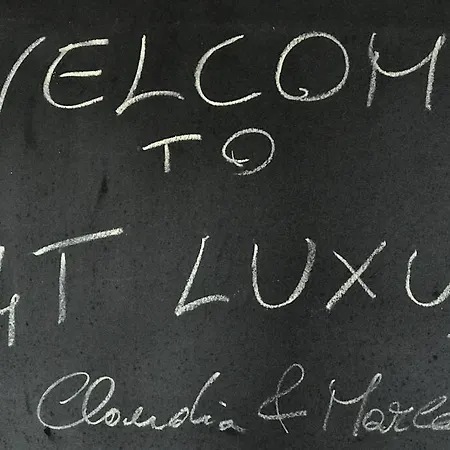 WELCOM
TO
HT LUXU
Claudia & Marco